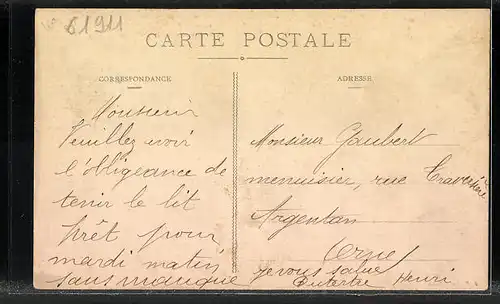 61911
CARTE POSTALE
CORRESPONDANCE
Monsieur
Veuillez avoir
l'obligeance de
tenir le lit
prêt pour
mardi matin
sans manque
ADRESSE
Monsieur Gaubert
menuisier, rue Traversière
Argentan
Orne
je vous salue
Dutertre Henri